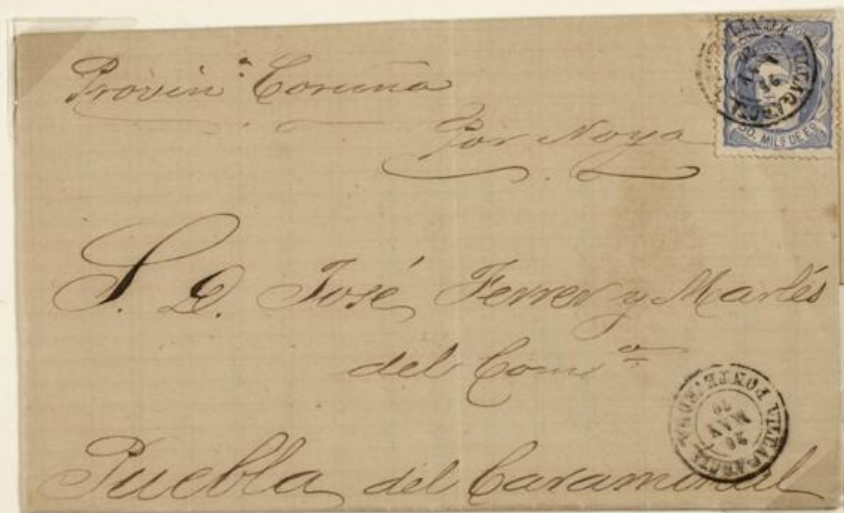 Provin.ª Coruña
Por Noya
50. MILS DE Eº
S. D. José Ferrer y Marlés
del Com.º
VILLAGARCIA
26 MAY 70
Puebla del Caramiñal